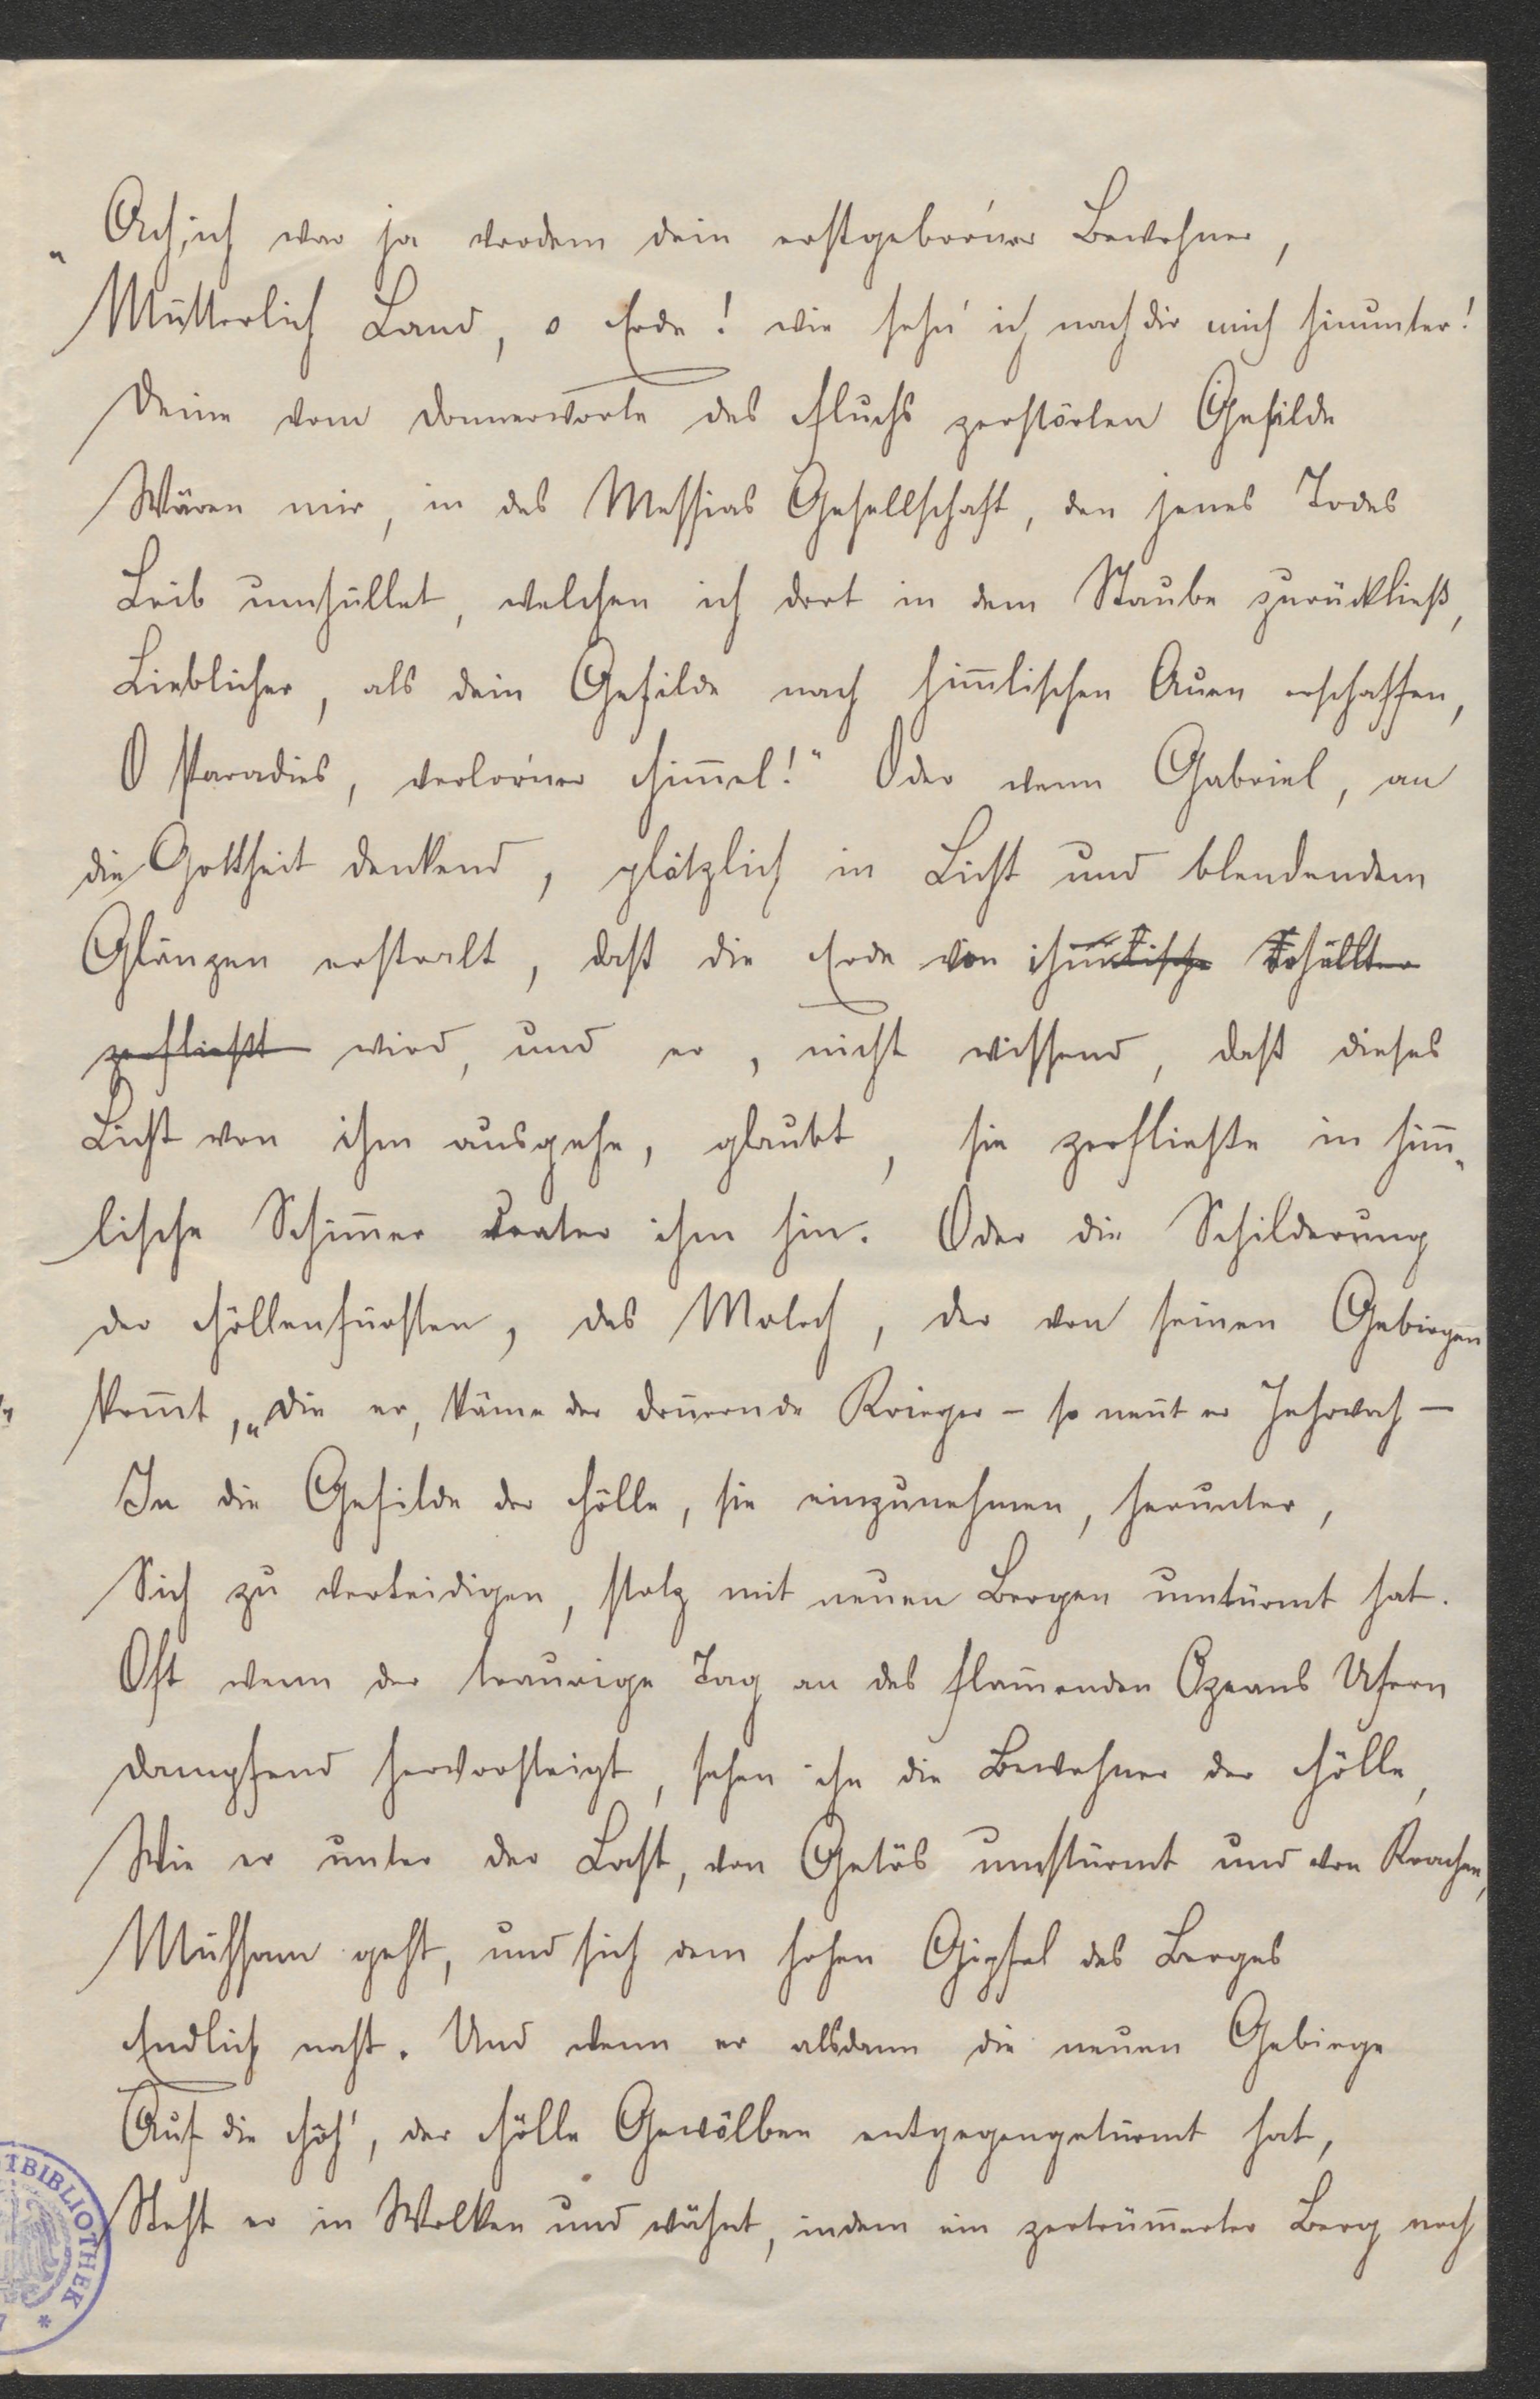 „Ach, ich war ja vordem dein erstgebor'ner Bewohner,
Mütterlich Land, o Erde! wie sehn' ich nach dir mich hinunter!
Deine vom Donnerworte des Fluchs zerstörten Gefilde
Wären mir, in des Messias Gesellschaft, den jenes Todes
Leib umhüllet, welchen ich dort in dem Staube zurückließ,
Lieblicher, als dein Gefilde nach him̅lischen Auen erschaffen,
O Paradies, verlor'ner Him̅el!“ Oder wenn Gabriel, an
die Gottheit denkend, plötzlich in Licht und blendendem
Glänzen erstralt, daß die Erde von ihm erhellt
zerfließt wird, und er, nicht wissend, daß dieses
Licht von ihm ausgehe, glaubt, sie zerfließe in him̅-
lische Schim̅er unter ihm hin. Oder die Schilderung
der Höllenfürsten, des Moloch, der von seinen Gebirgen
kom̅t, „die er, käme der don̅ernde Krieger – so nen̅t er Jehovah –
In die Gefilde der Hölle, sie einzunehmen, herunter,
Sich zu verteidigen, stolz mit neuen Bergen umtürmt hat.
Oft wenn der traurige Tag an des flam̅enden Ozeans Ufern
Dampfend hervorsteigt, sehen ihn die Bewohner der Hölle,
Wie er unter der Last, von Getös umstürmt und von Krachen,
Mühsam geht, und sich dem hohen Gipfel des Berges
Endlich naht. Und wenn er alsdann die neuen Gebirge
Auf die Höh', der Hölle Gewölben entgegengetürmt hat,
Steht er in Wolken und wähnt, indem ein zertrüm̅erter Berg noch
TBIBLIOTHEK